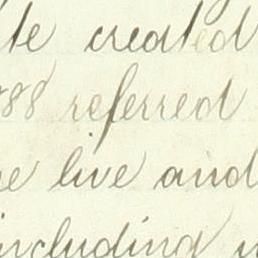 created
88 referred
live and
including